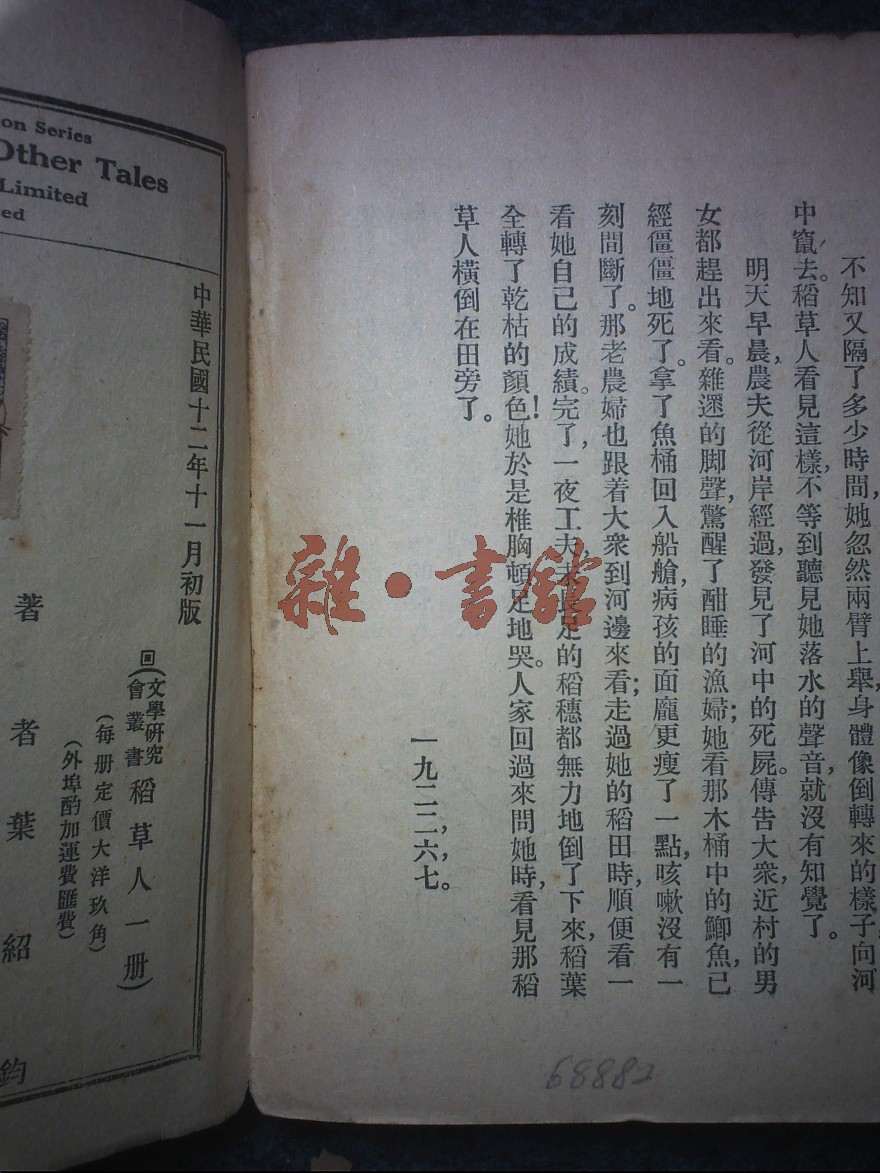 不知又隔了多少時間，她忽然兩臂上舉，身體像倒轉來的樣子，向河
中竄去。稻草人看見這樣，不等到聽見她落水的聲音，就沒有知覺了。
明天早晨，農夫從河岸經過，發見了河中的死屍。傳告大衆，近村的男
女都趕出來看。雜遝的脚聲，驚醒了酣睡的漁婦；她看那木桶中的鯽魚，已
經僵僵地死了。拿了魚桶回入船艙，病孩的面龐更瘦了一點，咳嗽沒有一
刻間斷了。那老農婦也跟着大衆到河邊來看；走過她的稻田時，順便看一
看她自己的成績。完了，一夜工夫，未長足的稻穗都無力地倒了下來，稻葉
全轉了乾枯的顏色！她於是椎胸頓足地哭。人家回過來問她時，看見那稻
草人橫倒在田旁了。
一九二二，六，七。
68882
雜·書館
on Series
Other Tales
Limited
ed
中華民國十二年十一月初版
回(文學研究會叢書稻草人一册)
(每册定價大洋玖角)
(外埠酌加運費匯費)
著者葉紹鈞